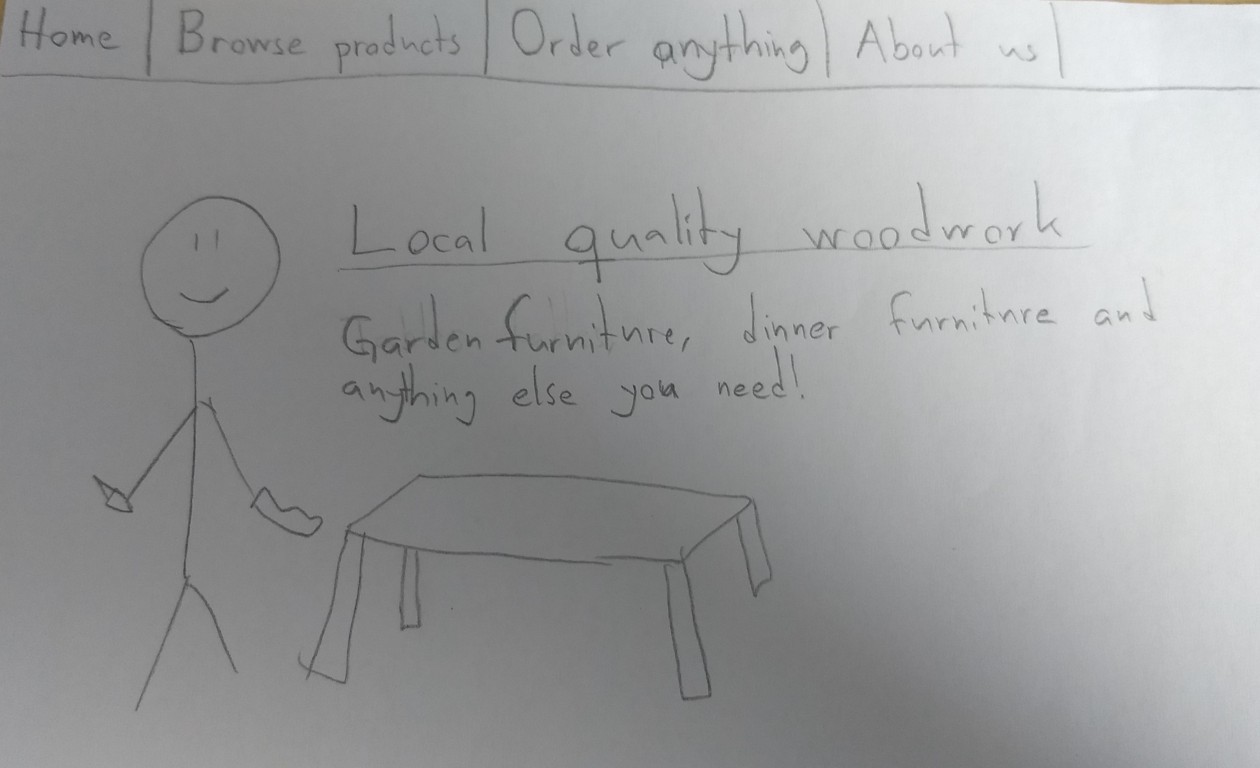 Home | Browse products | Order anything | About us |
Local quality woodwork
Garden furniture, dinner furniture and
anything else you need!